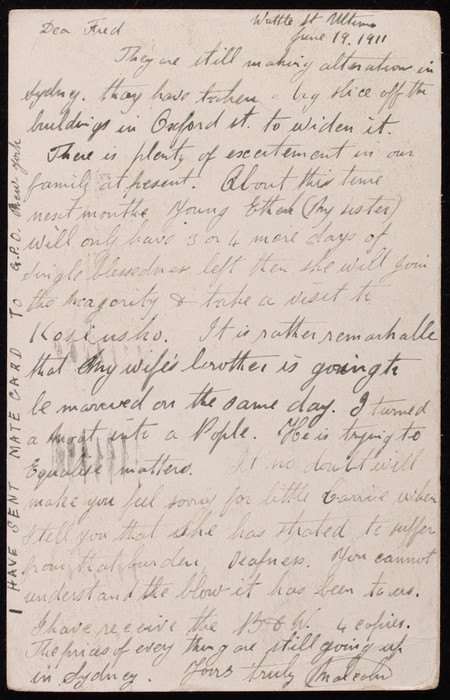 Wattle St Ultimo
Dea Fred June 19. 1911
They are still making alteration in
Sydney. they have taken a big slice off the
buildings in Oxford st. to widen it.
There is plenty of excertement in our
family at present. About this time
next monthe Young Ethen (My sister)
will only have 3 or 4 more days of
single blessedness left then she will join
the magority & take a visit to
Kosiusko. It is rather remarkalle
that My wife's brother is going to
be marrered on the same day. I turned
a into a He is trying to
Equalise matters. It no doubt will
make you feel sorry for little Carrie when
I tell you that she has strated to suffer
from that burden, Deafness. You cannot
understand the blow it has been to us.
I have receive the B & W. 4 copies.
The prices of every thing are still going up
in Sydney. Yours truly Malcolm
I HAVE SENT MATE CARD TO G.P.O. New York